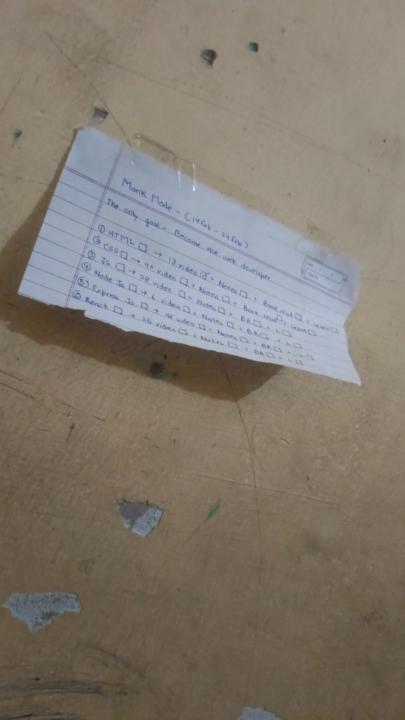 Monk Mode - (14 Feb - 24 Feb)
The only goal - Become the web developer
① HTML ☐ → 13 video ☑ + Notes ☐ + Book read ☐ + Learn ☐
② CSS ☐ → 40 video ☐ + Notes ☐ + Book read ☐ + Learn ☐
③ JS ☐ → 28 video ☐ + Notes ☐ + BR ☐ + L ☐
④ Node Js ☐ → 6 video ☐ + Notes ☐ + BR ☐ + L ☐
⑤ Express Js ☐ → video ☐ + Notes ☐ + BR ☐ + L ☐
⑥ React ☐ → video ☐ + Notes ☐ + BR ☐ + L ☐